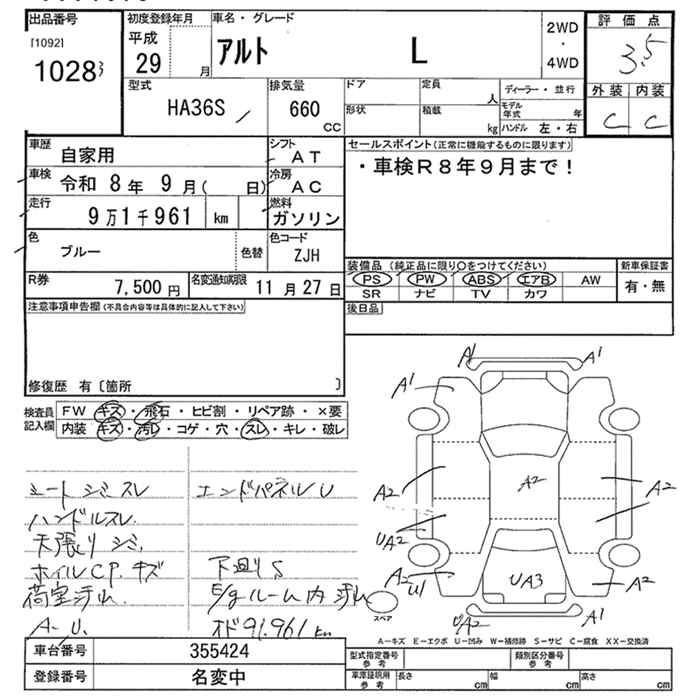 出品番号
[1092]
1028
初度登録年月
平成
29 月
車名・グレード
アルト L
2WD
・
4WD
評価点
3.5
外装 内装
C C
型式
HA36S
排気量
660
CC
ドア
形状
定員
人
積載
kg
ディーラー・並行
モデル年式 年
ハンドル 左・右
車歴
自家用
シフト
AT
車検
令和 8年 9月( 日)
冷房
AC
走行
9万1千961 km
燃料
ガソリン
色
ブルー
色替
色コード
ZJH
R券
7,500円
名変通知期限
11月27日
セールスポイント(正常に機能するものに限ります)
・車検R8年9月まで!
装備品 (純正品に限り○をつけてください)
PS PW ABS エアB AW
SR ナビ TV カワ
新車保証書
有・無
後日品
注意事項申告欄(不具合内容等は具体的に記入して下さい)
修復歴 有〔箇所 〕
検査員
記入欄
FW キズ・飛石・ヒビ割・リペア跡・×要
内装 キズ・汚レ・コゲ・穴・スレ・キレ・破レ
シートシミスレ
ハンドルスレ
天張りシミ
ホイルCP.キズ
荷室汚れ
A-U.
エンドパネルU
下廻りS
E/gルーム内汚れ
オド91,961km
A1 A1
A1 A1
A2 A2 A2
UA2
A2 U1 UA3 A2
UA2 A1
スペア
A-キズ E-エクボ U-凹み W-補修跡 S-サビ C-腐食 XX-交換済
車台番号 355424
登録番号 名変中
型式指定番号
参考
類別区分番号
参考
車庫証明用
参考
長さ cm 幅 cm 高さ cm